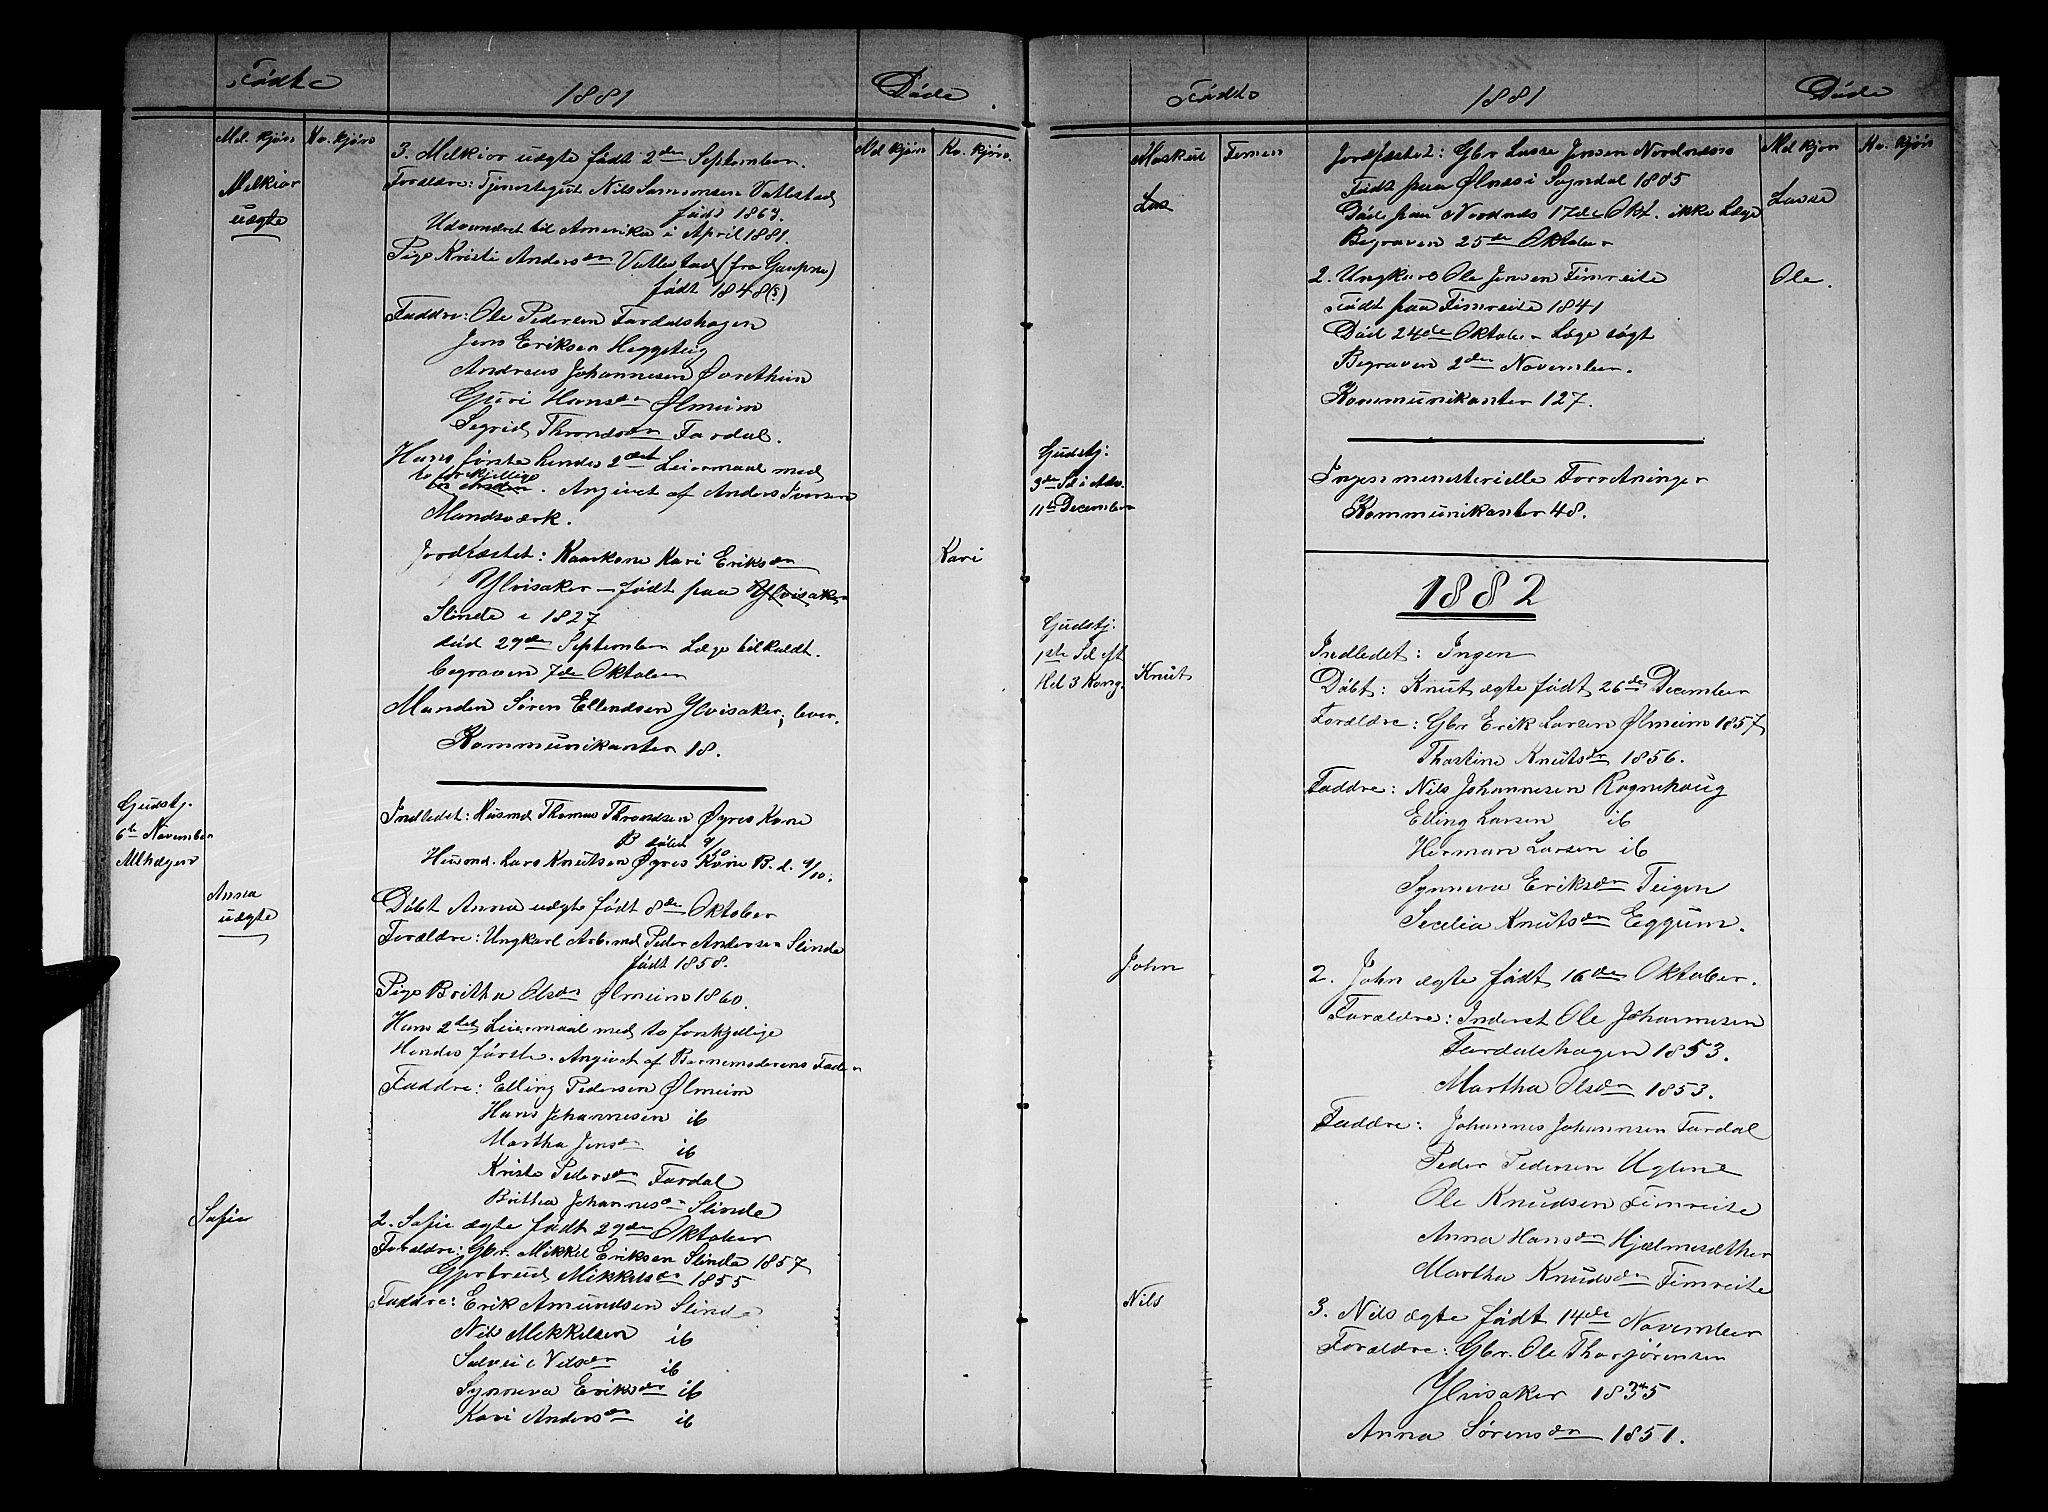 Fødte
1881
Døde
Md. kjøn
Kv. kjøn
Md kjøn
Kv. kjøn.
Melkior
uægte
3. Melkior uægte født 2den September.
Forældre: Tjenestegut Nils Samsonsen Vallestad
født 1863.
Udvandret til Amerika i April 1881.
Pige Kristi Andersdr Vallestad (fra Gaupne)
født 1848(?)
Faddre: Ole Pedersen Fardalshagen
Jens Eriksen Heggsteig
Andreas Johannesen Øvrethun
Guri Hansdr Ølmeim
Segrid Throndsdr Fardal.
Hans første hendes 2det Leiermaal med
to forskjellige
. Angivet af Anders Iversen
Mundsværk.
Jordfæstet: Kaarkone Kari Eriksdr
Ylvisaker – født paa Ylvisaker
Slinde i 1827
død 29de September Læge tilkaldt.
begraven 7de Oktober
Kari
Manden Søren Ellendsen Ylvisaker, lever.
Kommunikanter 18.
Gudstj.
6te November
Allhelgens
Indledet: Husmd Thomas Throndsen Øyres Kone
B. død 9/10
Husmd. Lars Knutsen Øyres Kone B. d. 9/10.
Anna
uægte
Døbt Anna uægte født 8de Oktober
Forældre: Ungkarl Arb.md Peder Andersen Slinde
født 1858.
Pige Britha Olsdr Ølmeim 1860.
Hans 2det Leiermaal med to forskjellige
Hendes første. Angivet af Barnemoderens Fader
Faddre: Elling Pedersen Ølmeim
Hans Johannesen ib
Martha Jensdr ib
Kristi Pedersdr Fardal
Britha Johannesdr Slinde
Sofie
2. Sofie ægte født 29de Oktober
Forældre: Gbr. Mikkel Eriksen Slinde 1857
Gjertrud Mikkelsdr 1855
Faddre: Erik Amundsen Slinde
Nils Mikkelsen ib
Solvei Nilsdr ib
Synneva Eriksdr ib
Kari Andersdr ib
Fødte
1881
Døde
Maskul
Femen
Md kjøn
Kv. kjøn
Las
Jordfæstet: Gbr Lasse Jensen Nordnæs
Født paa Ølnæs i Sogndal 1805
Død paa Nordnæs 17de Okt. ikke Læge
Begraven 25de Oktober
Lasse
2. Ungkarl Ole Jensen Fimreite
Født paa Fimreite 1841
Død 24de Oktober Læge søgt
Begraven 2den November.
Ole.
Kommunikanter 127.
Gudstj:
3de Sd i Adv.
11te December
Ingen menesterielle Forretninger
Kommunikanter 48.
1882
Gudstj:
1ste Sd eft
Hel 3 Kong.
Knut
Indledet: Ingen
Døbt: Knut ægte født 26de December
Forældre: Gbr Erik Larsen Ølmeim 1857
Thortine Knutsdr 1856.
Faddre: Nils Johannesen Rognehaug
Elling Larsen ib
Herman Larsen ib
Synneva Eriksdr Teigen
Secelia Knutsdr Eggum.
John
2. John ægte født 16de Oktober.
Forældre: Inderst Ole Johannesen
Fardalshagen 1853.
Martha Olsdr 1853.
Faddre: Johannes Johannsen Fardal
Peder Pedersen Uglene
Ole Knudsen Fimreite
Anna Hansdr Hjælmesæther
Martha Knudsdr Fimreite
Nils
3. Nils ægte født 14de November
Forældre: Gbr. Ole Thorjørensen
Ylvisaker 1835
Anna Sørensdr 1851.